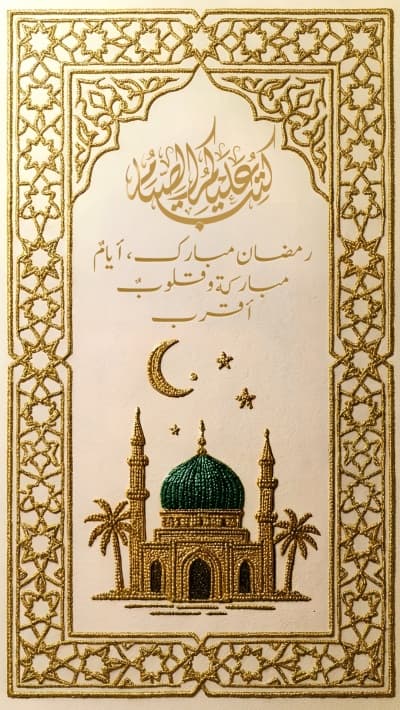 كتب عليكم الصيام
رمضان مبارك، أيامٌ
مباركة وقلوبٌ
أقرب